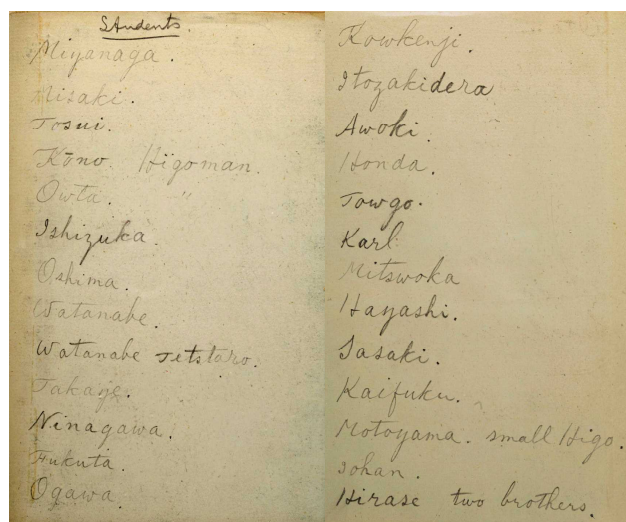 Students.
Miyanaga.
Misaki.
Tosui.
Kōno. Higoman.
Owta. "
Ishizuka.
Oshima.
Watanabe.
Watanabe Tetstaro.
Takaye.
Ninagawa.
Fukuta.
Ogawa.
Kowkenji.
Itozakidera
Awoki.
Honda.
Towgo.
Karl.
Mitswoka
Hayashi.
Sasaki.
Kaifuku.
Motoyama. small Higo.
Johan.
Hirase two brothers.